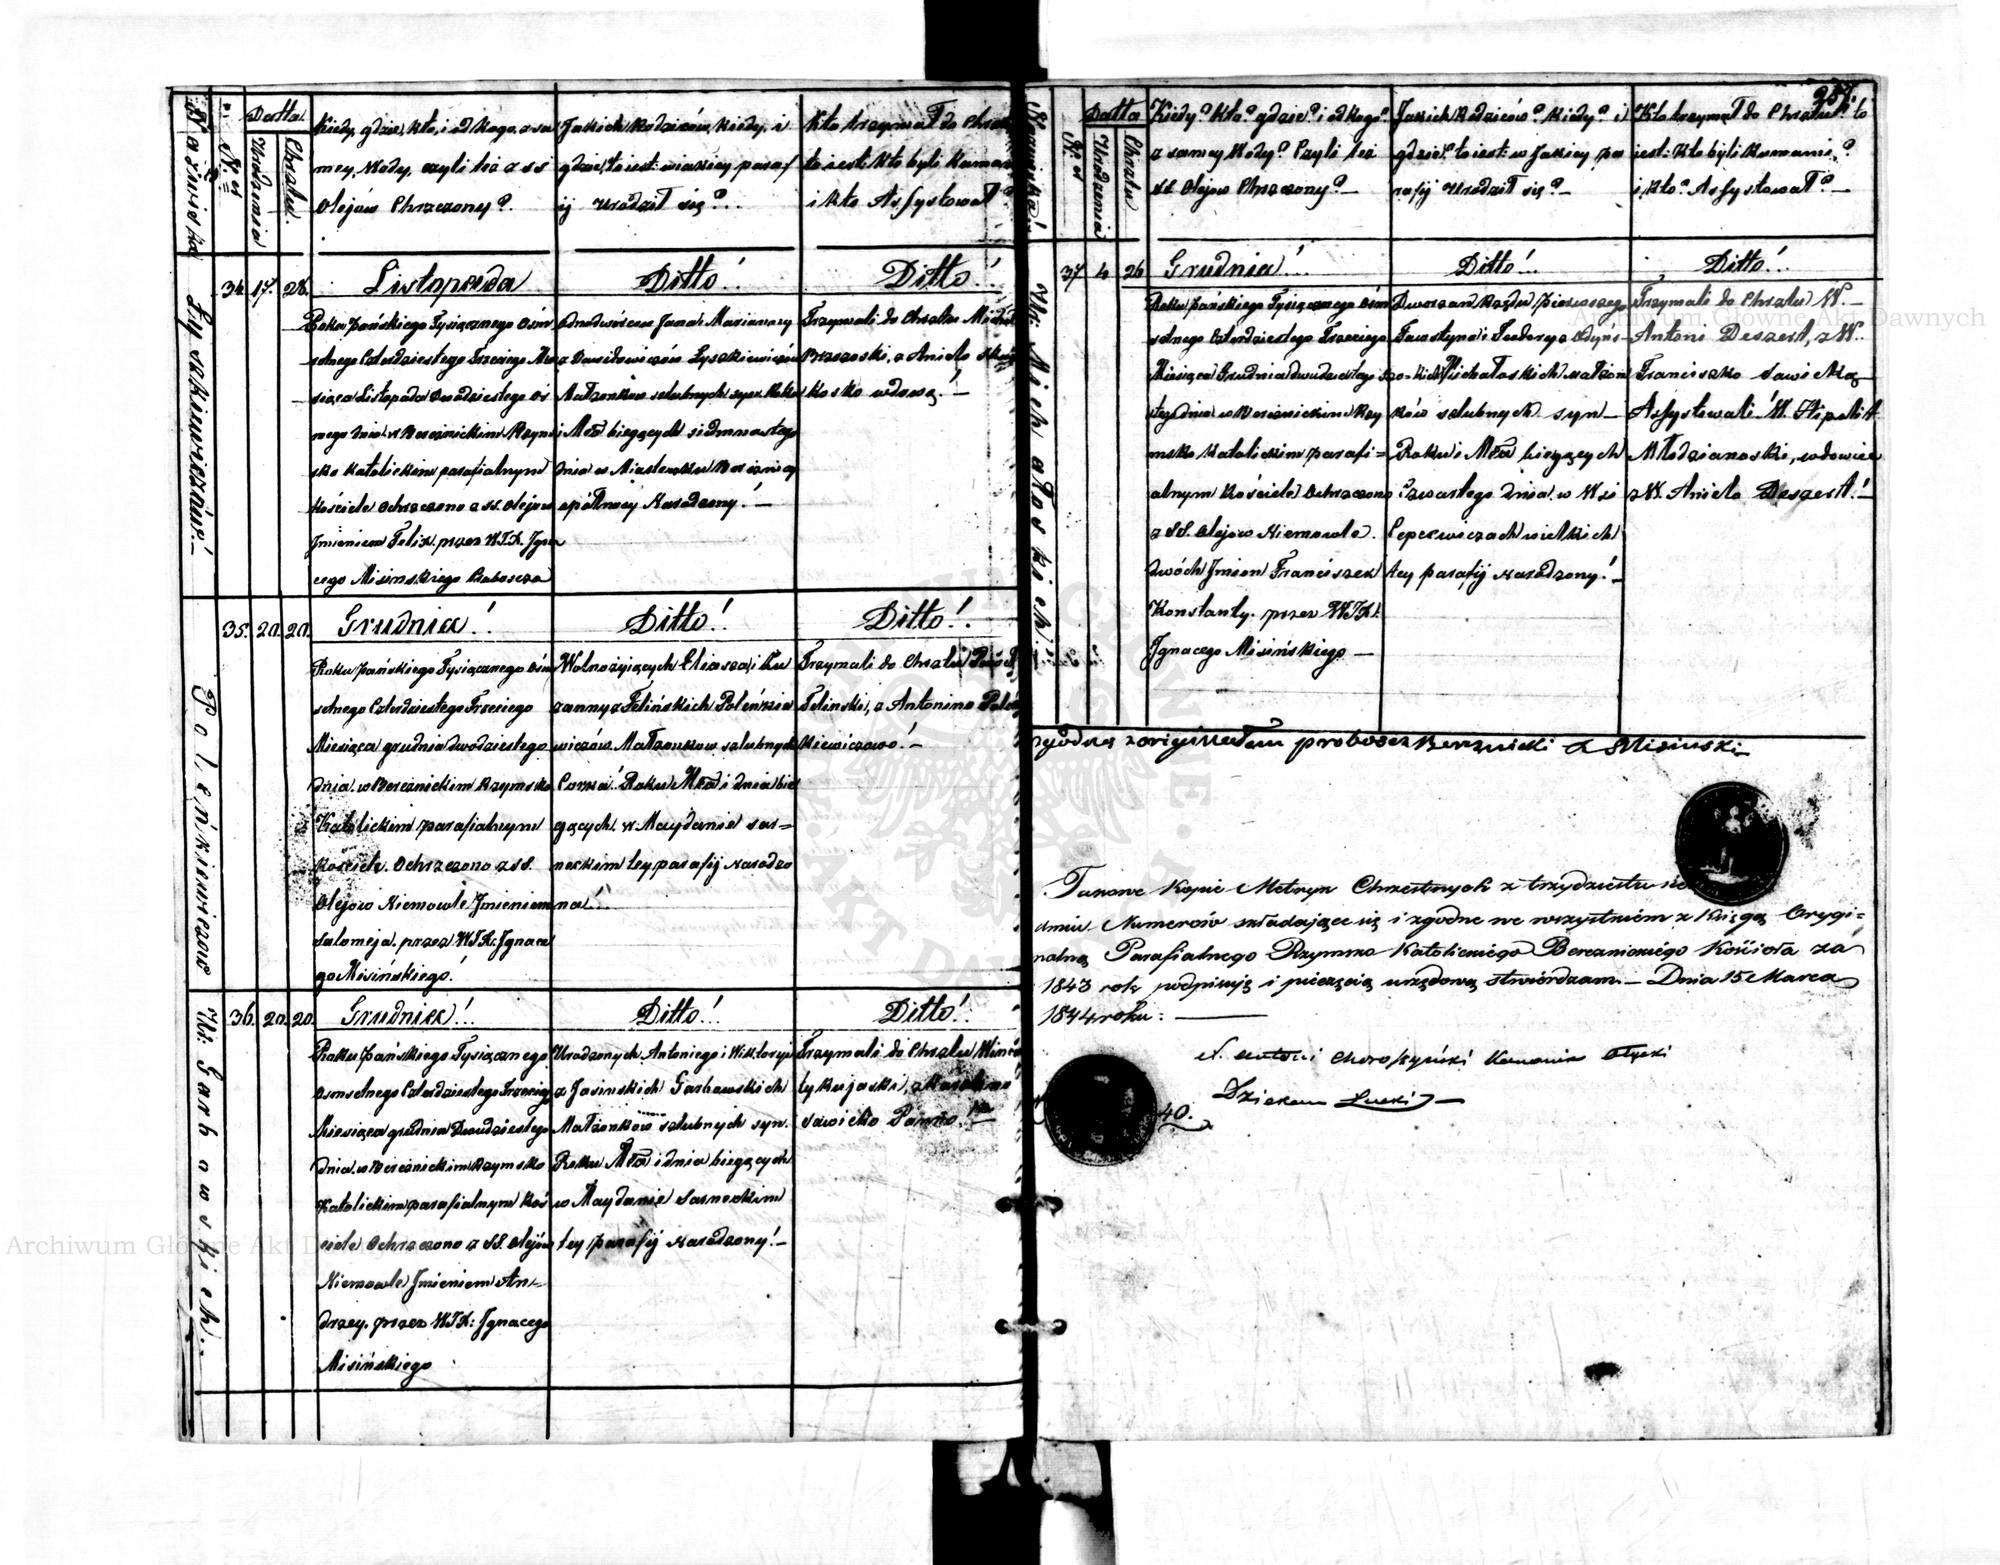 Nazwiska
N: et
Datta
Urodzenia
Chrztu
Kiedy, gdzie, kto, i od kogo, z sa
mey Wody, czyli też z SS
Olejów Chrzczony?
Jakich Rodziców, kiedy, i
gdzie, to iest: w iakiey paraf
ij Urodził się?
Kto trzymał do Chrztu
to iest: kto byli kumami
i kto Assystował?
Łyszkiewiczów!
34. 17. 28.
Listopada
Roku Pańskiego Tysiącznego Ośm
setnego Czterdziestego Trzeciego Mie
siąca Listopada Dwódziestego Os
mego dnia w Bereźnickim Rzym
sko Katolickim parafialnym
Kościele Ochrzczono z SS. Olejów
Imieniem Felix. przez WJX. Igna
cego Misinskiego Proboszcza
Ditto!
Ednodworców Jana i Maryanny
z Dawidowiczów Łyszkiewiczów
Małżonków szlubnych syn. Roku
i Mca bieżących siedmnastego
dnia w Miasteczku Bereźnicy
opółnocy Narodzony!
Ditto!
Trzymali do Chrztu Michał
Brzozoski, z Anielo
kosko wdową!
Polenkiewiczów
35. 20. 20.
Grudnia!
Roku Pańskiego Tysiącznego Ośm
setnego Czterdziestego Trzeciego
Miesiąca grudnia dwodziestego
dnia w Bereźnickim Rzymsko
Katolickim parafialnym
Kościele. Ochrzczono z SS.
Olejów Niemowle Imieniem
Salomeja. przez WJX: Ignace
go Misińskiego!
Ditto!
Wolnożyjących Eliasza i Zu
zanny z Felińskich Poleńkie
wiczów Małżonków szlubnych
Corka! Roku Mca i dnia bie
gących w Maydanie sar=
neckim tey parafij Narodzo
na!
Ditto!
Trzymali do Chrztu Józef
Felinski, z Antonino Poleń
kiewiczowo!
Ur: Garbawskich.
36. 20. 20.
Grudnia!
Roku Pańskiego Tysiącznego
Ośmsetnego Czterdziestego Trzeciego
Miesiąca grudnia Dwudziestego
dnia w Bereźnickim Rzymsko
Katolickim parafialnym Koś
ciele Ochrzczono z SS. Olejów
Niemowle Imieniem An=
drzey. przez WJX: Ignacego
Misińskiego
Ditto!
Urodzonych Antoniego i Wiktoryi
z Jasinskich Garbawskich
Małżonków szlubnych syn.
Roku Mca i dnia bieżących
w Maydanie Sarneckim
tey parafij Narodzony!
Ditto!
Trzymali do Chrztu Wincen
ty Kujaski, z Karolino
Sawicko Panno!
Nazwiska
N: et
Datta
Urodzenia
Chrztu
Kiedy? Kto? gdzie? i od kogo?
z samey Wody? Czyli też
SS. Olejów Chrzczony?
Jakich Rodziców? Kiedy? i
gdzie? to iest: w Jakiey pa
rafij Urodził się?
Kto trzymał do Chrztu? to
iest: Kto byli Kumami?
i kto? Assystował?
Ur: Michałoskich!
37. 4. 26.
Grudnia!
Roku Pańskiego Tysiącznego Ośm
setnego Czterdziestego Trzeciego
Miesiąca Grudnia dwudziestego szo=
stego dnia w Bereźnickim Rzy
msko Katolickim parafi=
alnym Kościele Ochrzczono
z SS. Olejów Niemowle.
dwóch Imion Franciszek
Konstanty. przez WJX:
Ignacego Misińskiego
Ditto!
Dworzan Rzędu Pierwszego
Faustyna i Teodory z
kich Michałoskich małżon
ków szlubnych syn
Roku i Mca bieżących
Czwartego dnia w Wsi
Cepcewiczach wielkich
tey parafij Narodzony!
Ditto!
Trzymali do Chrztu W.
Antoni Deszert, z W.
Franciszko Sawicką
Assystowali! W. Hipolit
Młodzianoski, wdowiec
z W. Anielo Deszert!
zgódną z oryginałem proboszcz Berznicki X Misinski
Takowe Kopie Metryk Chrzestnych z trzydziestu sie
dmiu Numerów składające się i zgodne we wszystkiem z Księgą Orygi=
nalną Parafialnego Rzymsko Katolickiego Bereznickiego Kościoła za
1843 rok podpisuję i pieczęcią urzędową stwierdzam. Dnia 15 Marca
1844 roku.
X. Antoni Choroszyński Kanonik Ołycki
Dziekan Łucki
40.
Archiwum Główne Akt Dawnych
Archiwum Główne Akt Dawnych